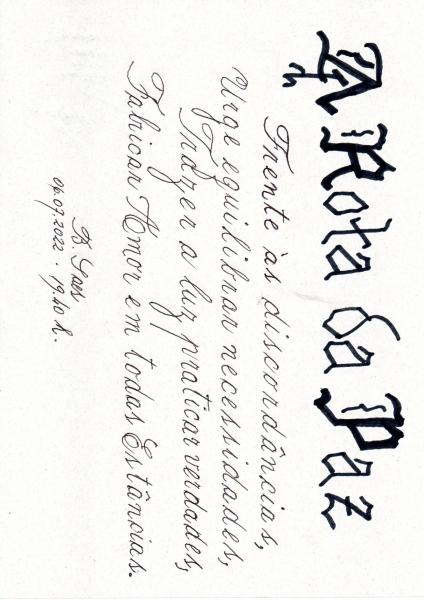 A Rota da Paz
Frente às discordâncias,
Urge equilibrar necessidades,
Trazer a luz, praticar verdades,
Fabricar Amor em todas Estâncias.
06.09.2022 - 19:10 h.